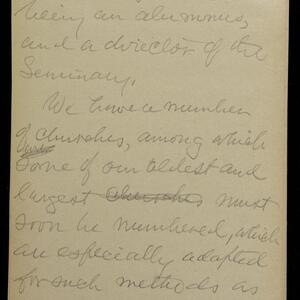 being an alumnus,
and a director of the
Seminary.
We have a number
of churches, among which
some of our oldest and
largest churches must
soon be numbered, which
are especially adapted
for such methods as